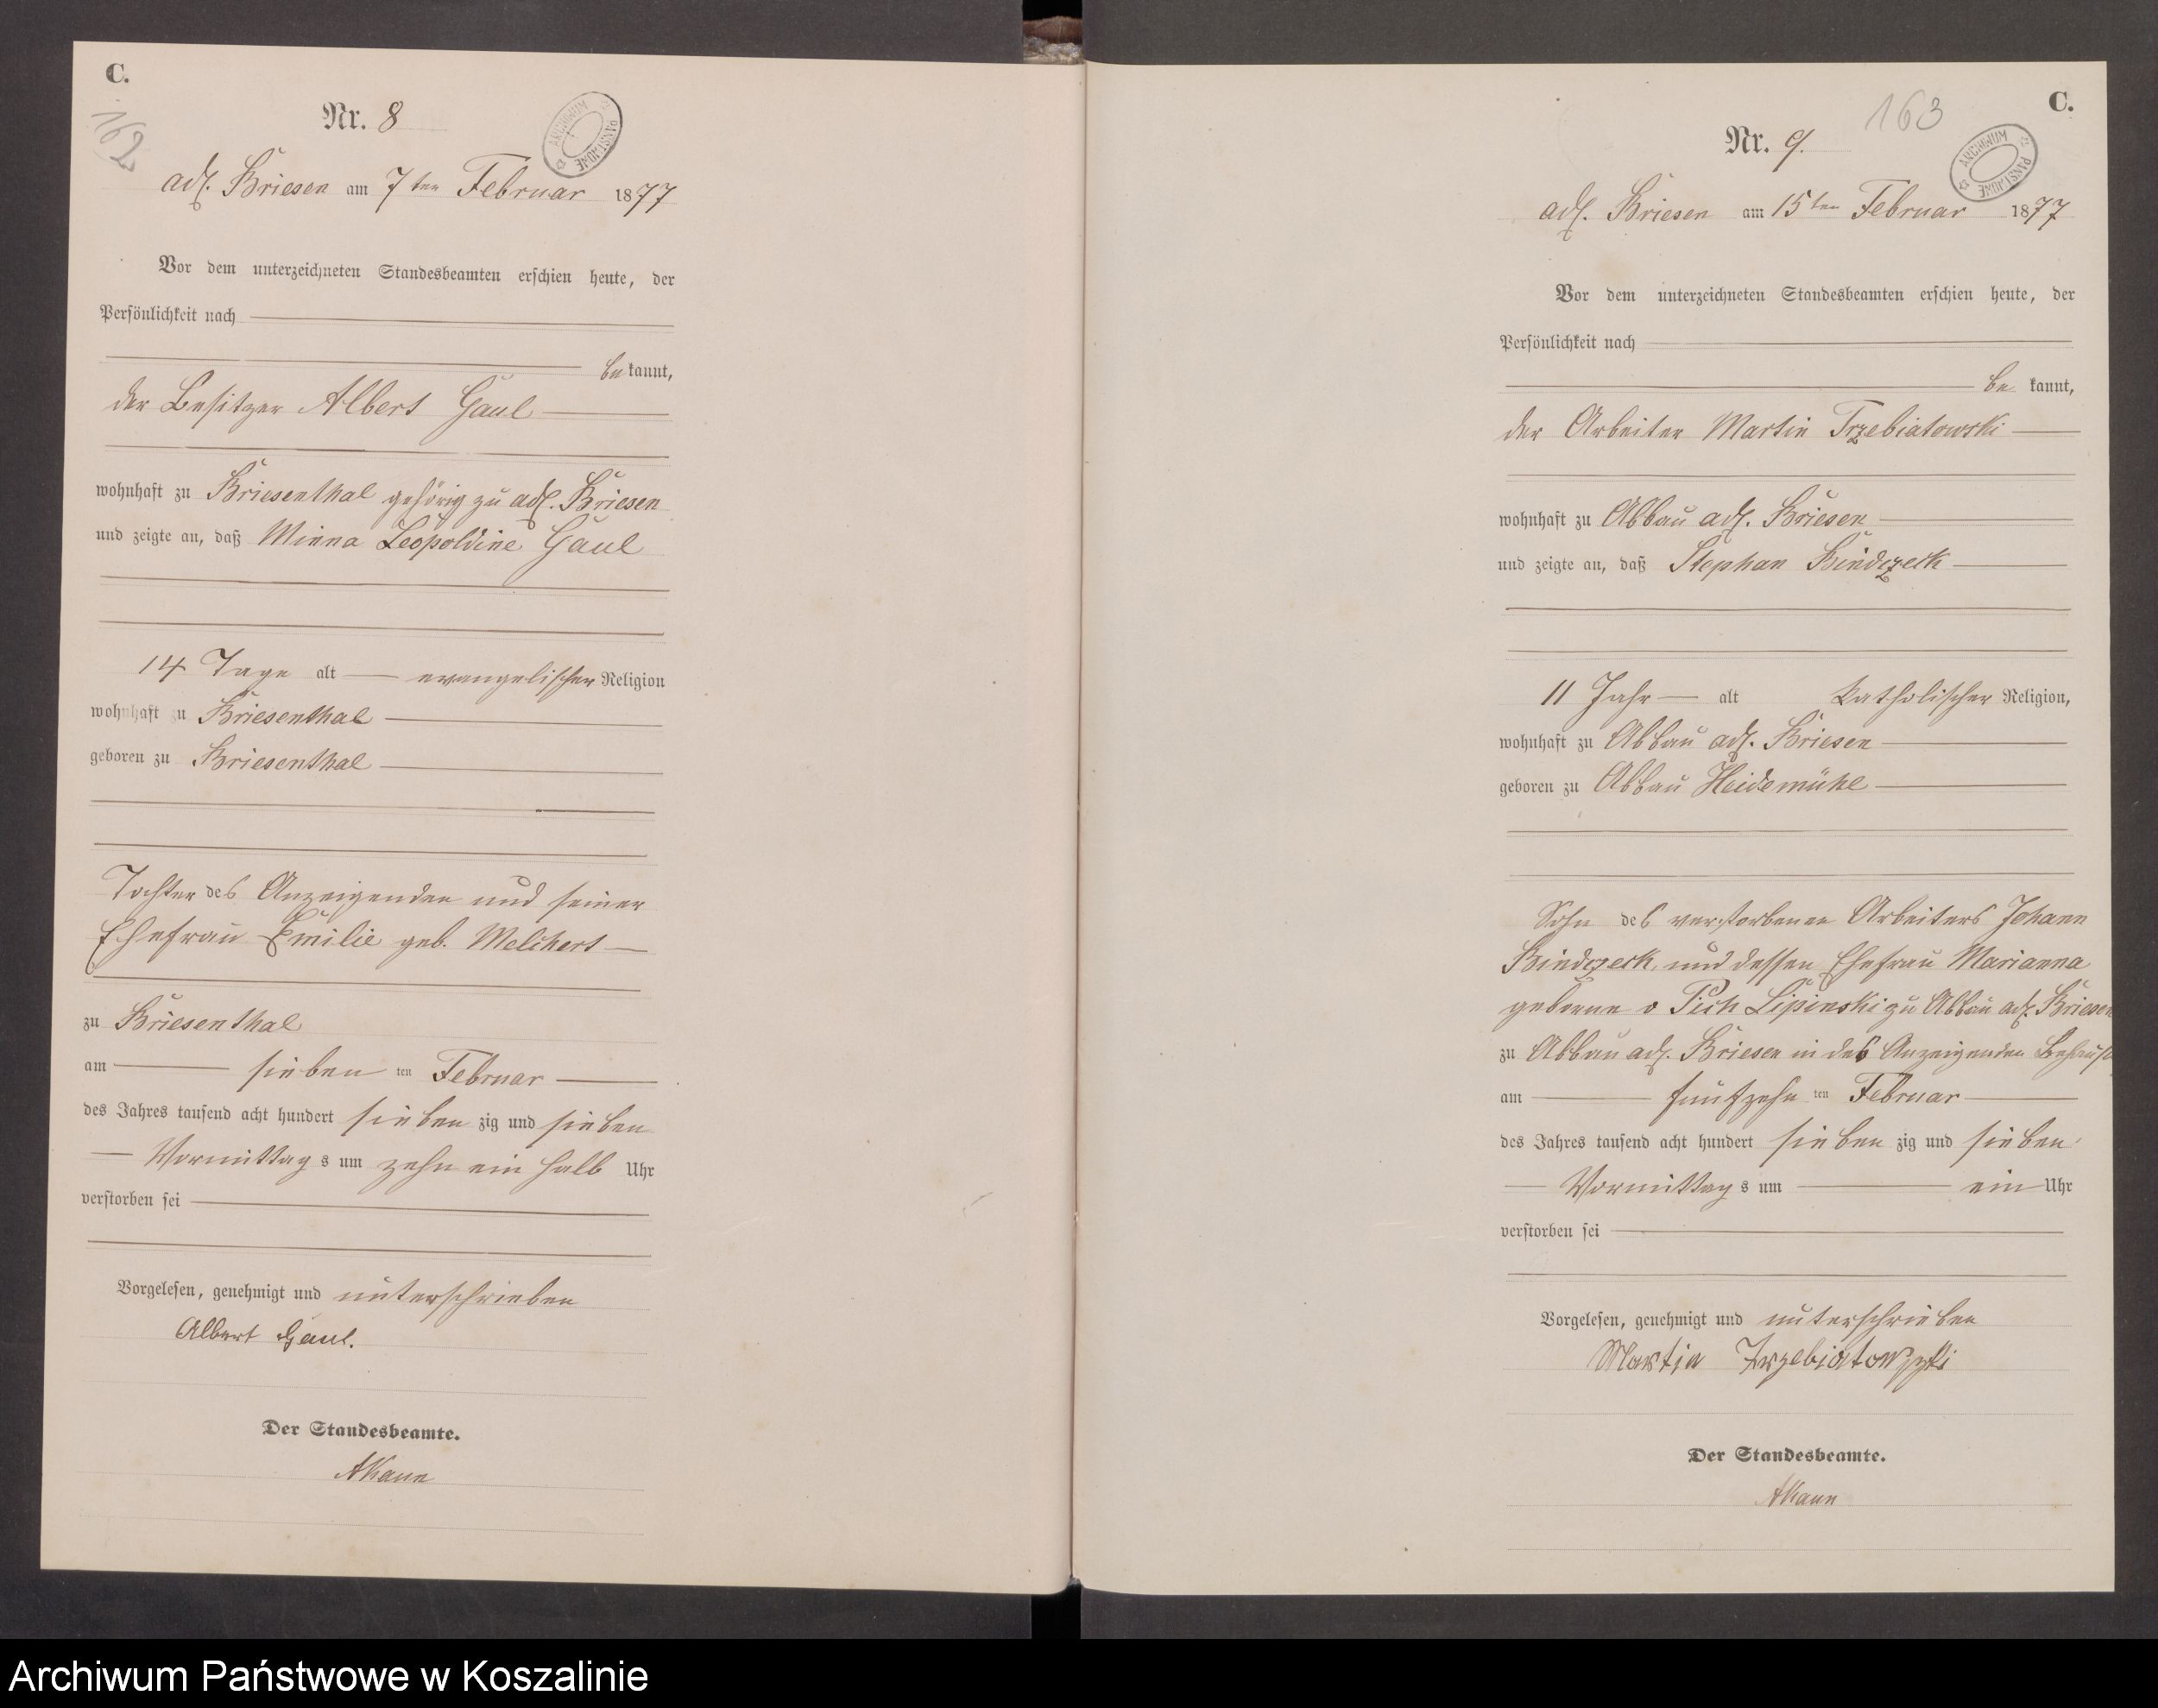 C.
162
Nr. 8
ARCHIWUM PAŃSTWOWE
adl. Briesen am 7ten Februar 1877
Vor dem unterzeichneten Standesbeamten erschien heute, der
Persönlichkeit nach
bekannt,
der Besitzer Albert Gaul
wohnhaft zu Briesenthal gehörig zu adl. Briesen
und zeigte an, daß Minna Leopoldine Gaul
14 Tage alt evangelischer Religion
wohnhaft zu Briesenthal
geboren zu Briesenthal
Tochter des Anzeigenden und seiner
Ehefrau Emilie geb. Melchert
zu Briesenthal
am sieben ten Februar
des Jahres tausend acht hundert sieben zig und sieben
Vormittags um zehn ein halb Uhr
verstorben sei
Vorgelesen, genehmigt und unterschrieben
Albert Gaul.
Der Standesbeamte.
AKaun
C.
163
Nr. 9.
ARCHIWUM PAŃSTWOWE
adl. Briesen am 15ten Februar 1877
Vor dem unterzeichneten Standesbeamten erschien heute, der
Persönlichkeit nach
be kannt,
der Arbeiter Martin Trzebiatowski
wohnhaft zu Abbau adl. Briesen
und zeigte an, daß Stephan Bindczeck
11 Jahr alt katholischer Religion,
wohnhaft zu Abbau adl. Briesen
geboren zu Abbau Heidemühl
Sohn des verstorbenen Arbeiters Johann
Bindczeck und dessen Ehefrau Marianna
geborne Lipinski zu Abbau adl. Briesen
zu Abbau adl. Briesen in des Anzeigenden Behaus
am fünfzehn ten Februar
des Jahres tausend acht hundert sieben zig und sieben
Vormittags um ein Uhr
verstorben sei
Vorgelesen, genehmigt und unterschrieben
Martin Trzebiatowski
Der Standesbeamte.
AKaun
Archiwum Państwowe w Koszalinie